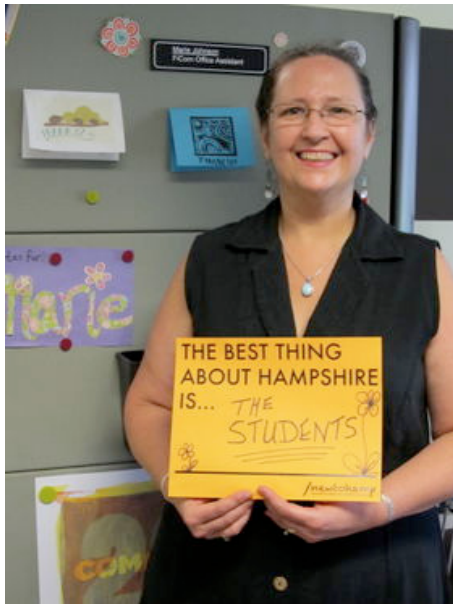 Marie Johnson
FiCom Office Assistant
THANK YOU
Marie
THE BEST THING
ABOUT HAMPSHIRE
IS... THE
STUDENTS
/newtohamp
COM